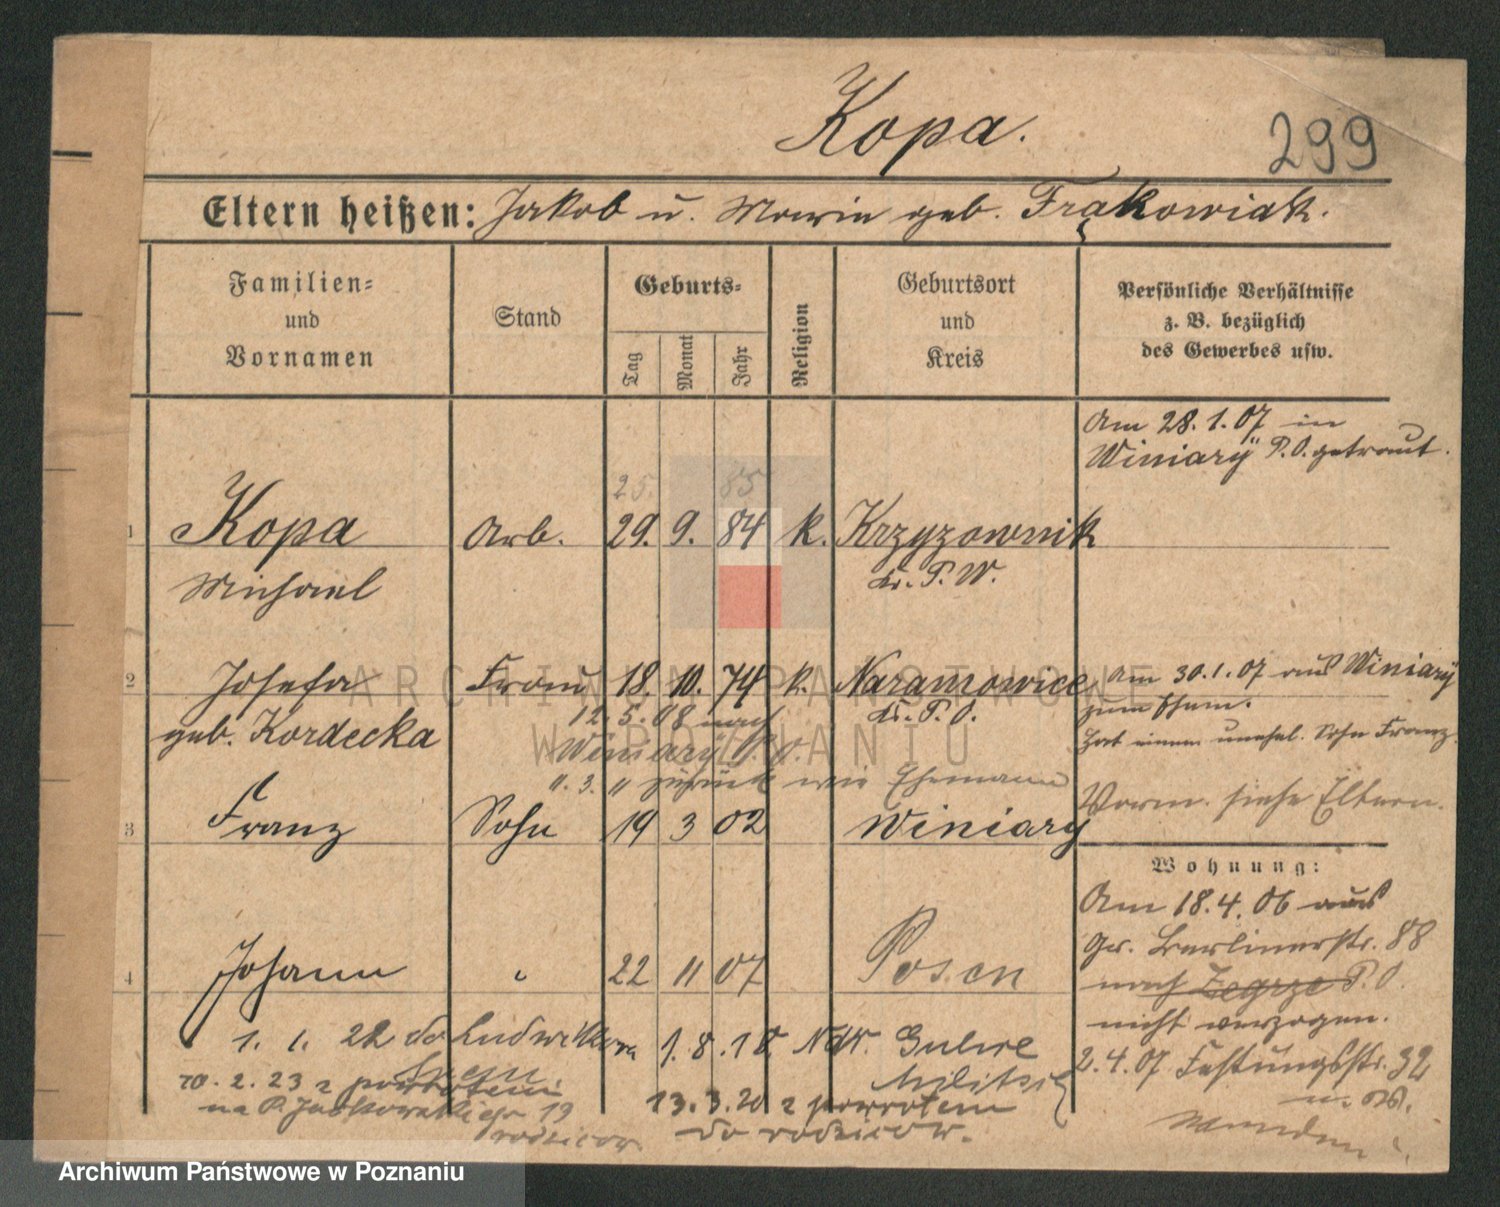 Kopa.
299
Eltern heißen: Jakob u. Marie geb. Frąkowiak.
Familien- und Vornamen
Stand
Geburts-
Tag
Monat
Jahr
Religion
Geburtsort und Kreis
Persönliche Verhältnisse
z. B. bezüglich
des Gewerbes usw.
Am 28.1.07 in
Winiary P.O. getraut.
25. 85
1 Kopa Arb. 29. 9. 84 k. Krzyzownik
Michael Kr. P. W.
2 Josefa Frau 18. 10. 74 k. Naramowice
geb. Kordecka Kr. P. O.
Am 30.1.07 aus Winiary
zum Ehem.
Hat einen unehel. Sohn Franz.
12.5.08 nach
Winiary P.O.
11.3. 11 zurück wie Ehemann
Vorm. siehe Eltern.
3 Franz Sohn 19 3 02 Winiary
4 Johann " 22 11 07 Posen
Wohnung:
Am 18.4.06 aus
Gr. Berlinerstr. 88
nach Zegrze P.O.
nicht verzogen.
2.4.07 Festungsstr. 32
1. 1. 22 do Ludwikowa
1.8.18 Ndr.
Militsch
10.2.23 z powrotem
na P. Jackowskiego 19
rodzicow
13.3.20 z powrotem
do rodzicow.
ARCHIWUM PAŃSTWOWE
W POZNANIU
Archiwum Państwowe w Poznaniu